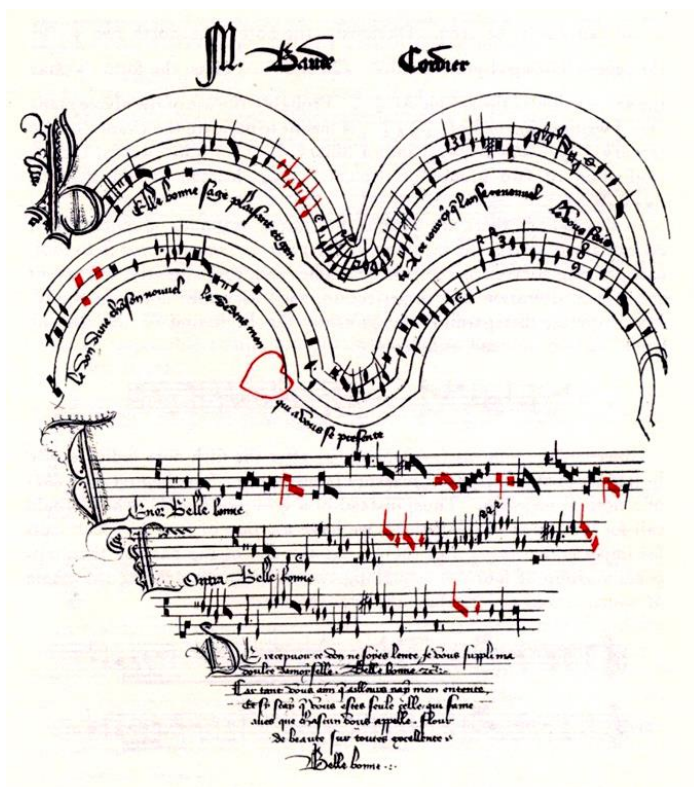 M. Baude Cordier
Belle bonne sage plaisant et gen
te A ce jour cy que l'an se renouvel
le Vous fais
le don d'une chanson nouvel
le Dedens mon
qui a vous se presente
Tenor Belle bonne
Contra Belle bonne
De recepvoir ce don ne soyes lente, Je vous suppli ma
doulce damoyselle. Belle bonne etc.
Car tant vous aim qu'aillours nay mon entente,
Et sy scay que vous estes seule celle qui fame
aves que chascun vous appelle. Flour
de beaute sur toutes excellente.
Belle bonne